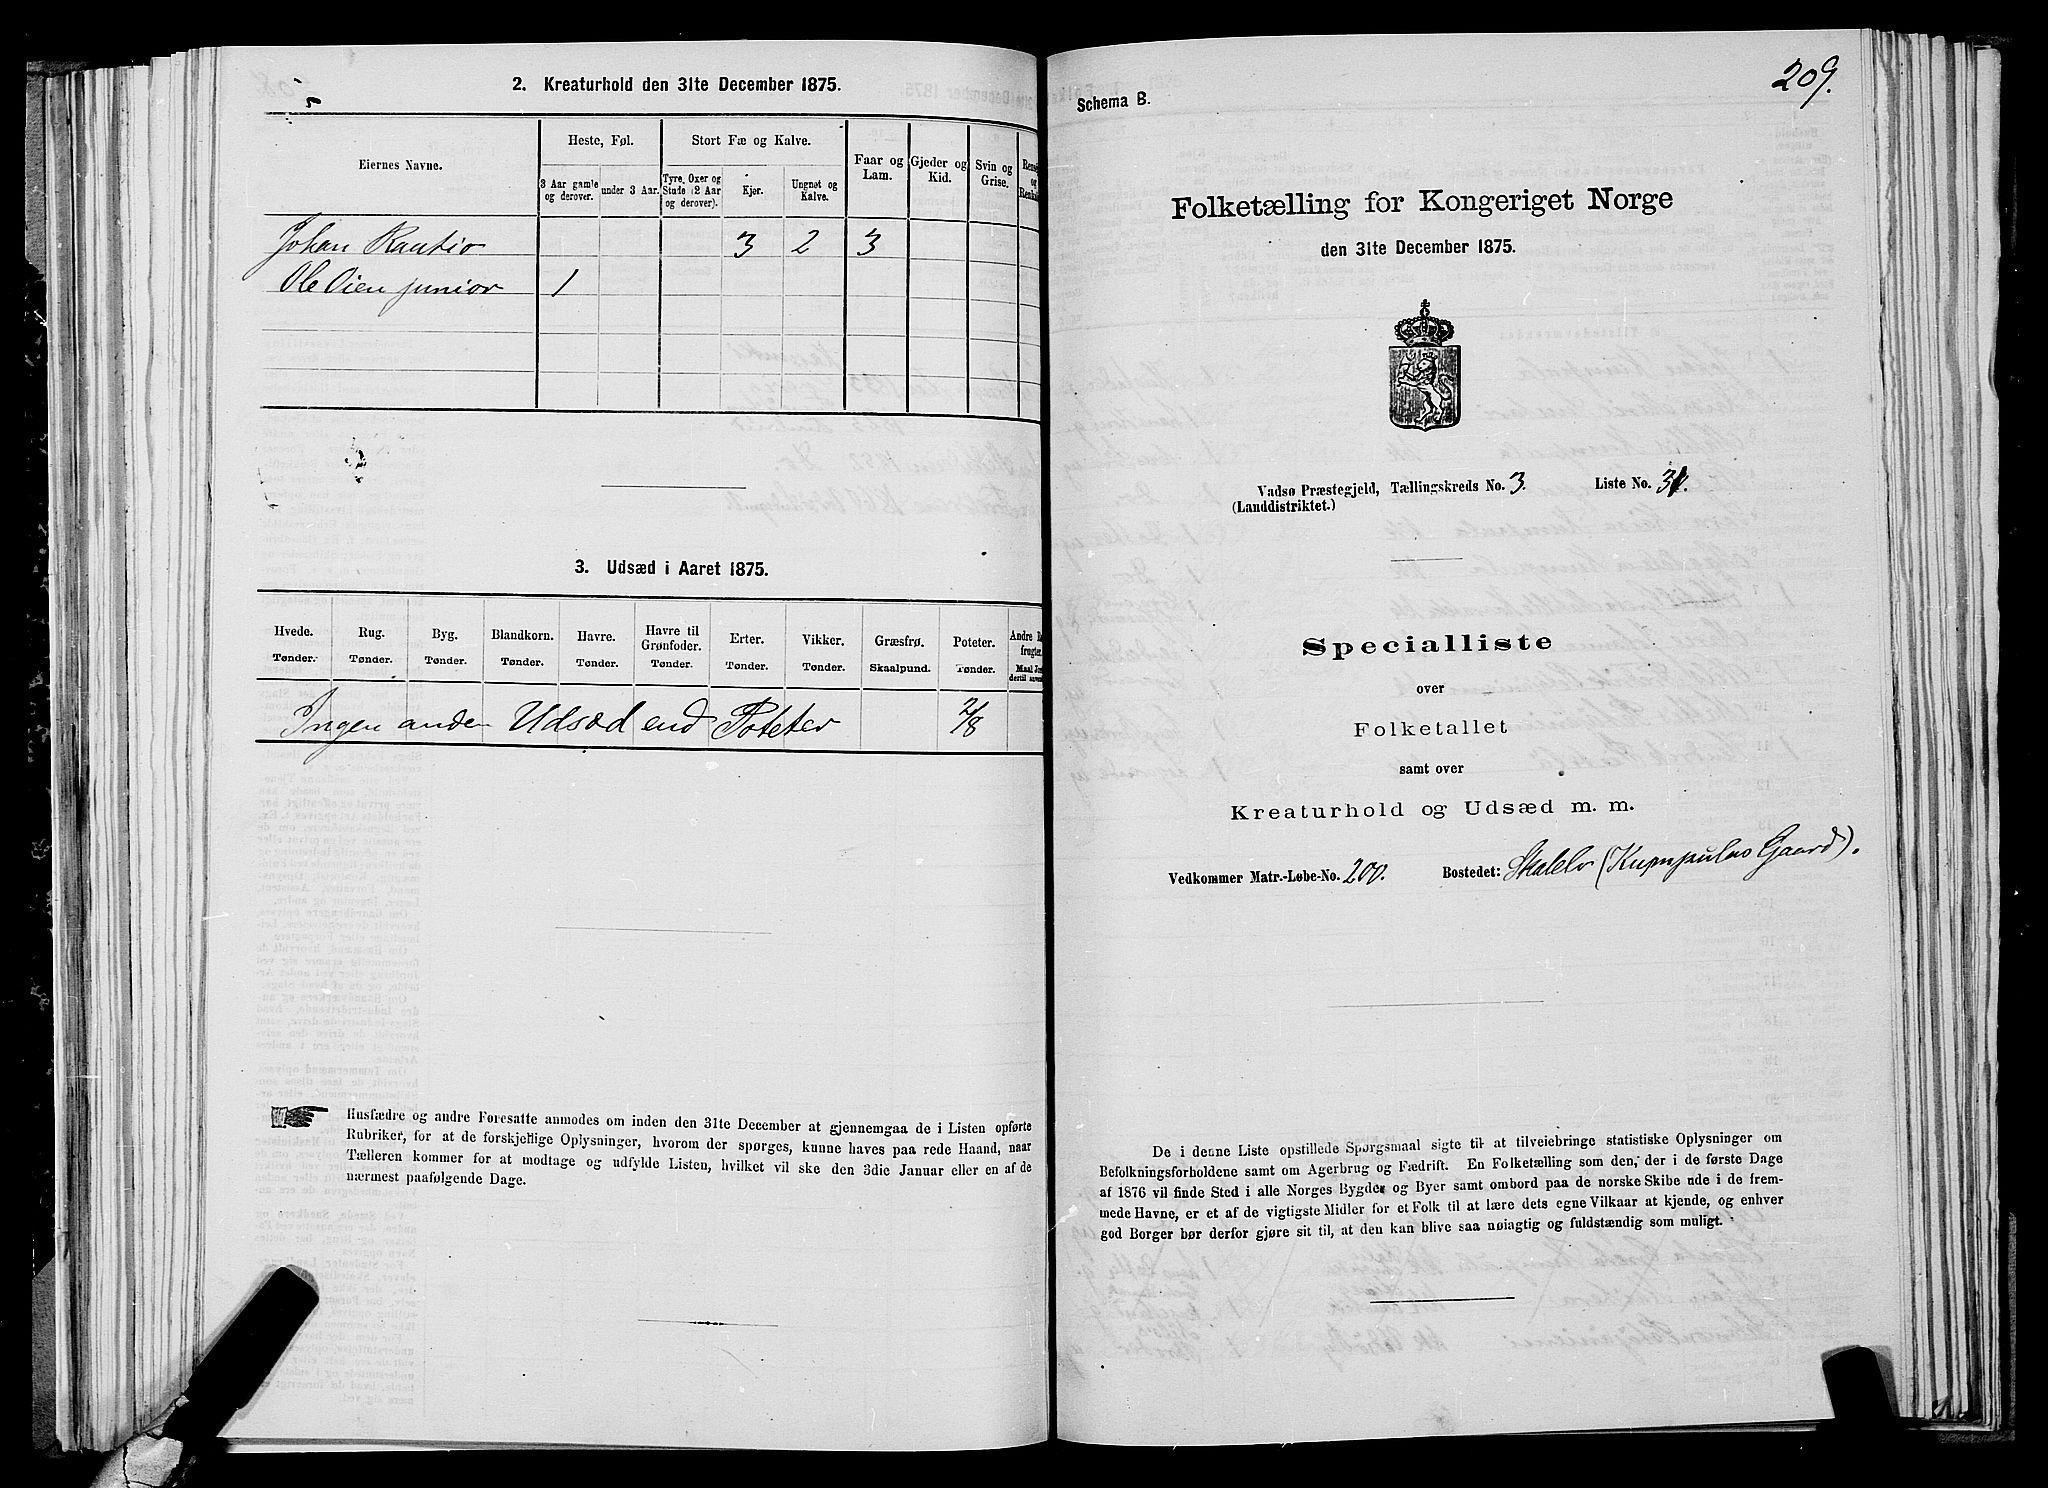 2. Kreaturhold den 31te December 1875.
Eiernes Navne.
Heste, Føl.
Stort Fæ og Kalve.
Faar og Lam.
Gjeder og Kid.
Svin og Grise.
3 Aar gamle og derover.
under 3 Aar.
Tyre, Oxer og Stude (2 Aar og derover).
Kjør.
Ungnøt og Kalve.
Johan Rautio 3 2 3
Ole Oien junior 1
3. Udsæd i Aaret 1875.
Hvede. Rug. Byg. Blandkorn. Havre. Havre til Grønfoder. Erter. Vikker. Græsfrø. Poteter.
Tønder. Tønder. Tønder. Tønder. Tønder. Tønder. Tønder. Tønder. Skaalpund. Tønder.
Ingen anden Udsæd end Poteter 2/8
Husfædre og andre Foresatte anmodes om inden den 31te December at gjennemgaa de i Listen opførte
Rubriker, for at de forskjellige Oplysninger, hvorom der spørges, kunne haves paa rede Haand, naar
Tælleren kommer for at modtage og udfylde Listen, hvilket vil ske den 3die Januar eller en af de
nærmest paafølgende Dage.
209.
Schema B.
Folketælling for Kongeriget Norge
den 31te December 1875.
Vadsø Præstegjeld, Tællingskreds No. 3. Liste No. 31.
(Landdistriktet.)
Specialliste
over
Folketallet
samt over
Kreaturhold og Udsæd m. m.
Vedkommer Matr.-Løbe-No. 200. Bostedet: (Kumpulas Gaard).
De i denne Liste opstillede Spørgsmaal sigte til at tilveiebringe statistiske Oplysninger om
Befolkningsforholdene samt om Agerbrug og Fædrift. En Folketælling som den, der i de første Dage
af 1876 vil finde Sted i alle Norges Bygder og Byer samt ombord paa de norske Skibe ude i de frem-
mede Havne, er et af de vigtigste Midler for et Folk til at lære dets egne Vilkaar at kjende, og enhver
god Borger bør derfor gjøre sit til, at den kan blive saa nøiagtig og fuldstændig som muligt.